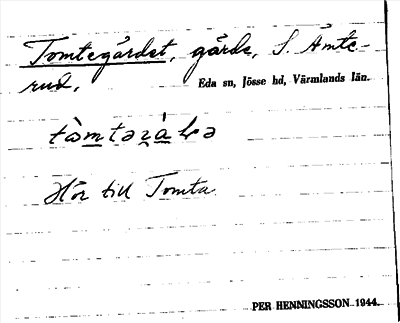 Tomtegårdet, gårde, S. Åmte-
rud,
Eda sn, Jösse hd, Värmlands län.
Hör till Tomta.
PER HENNINGSSON 1944.